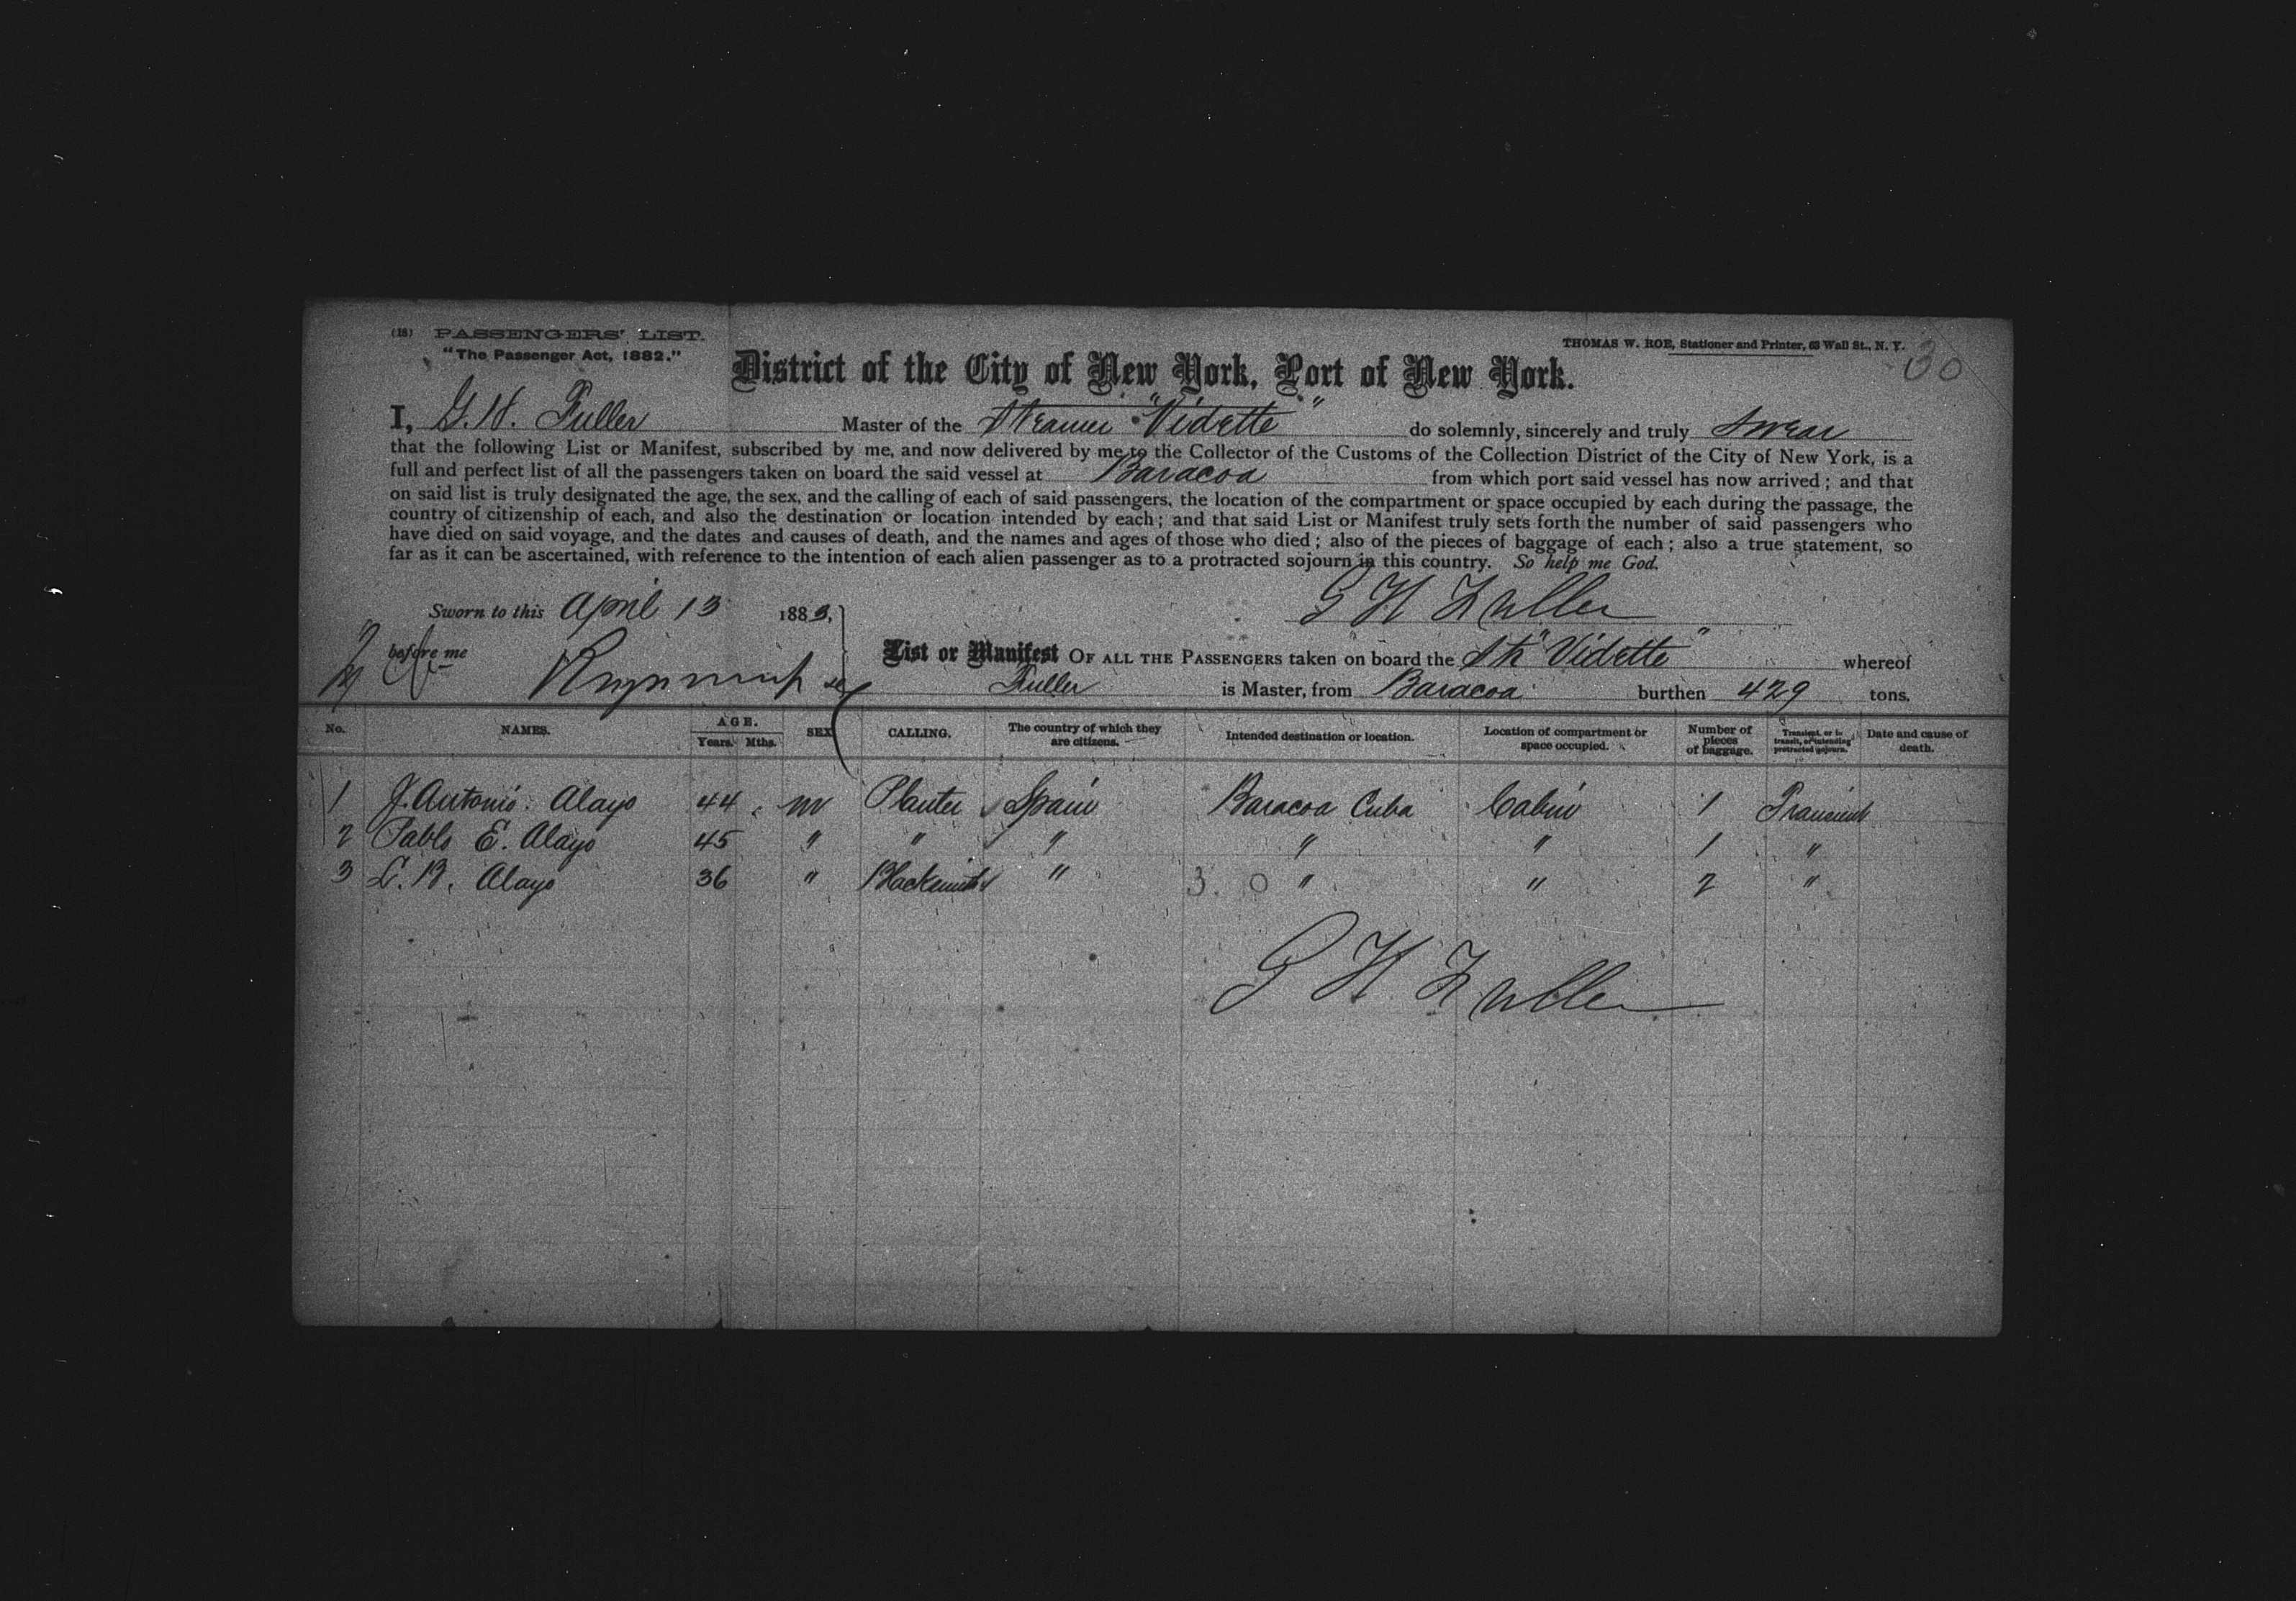 (18) PASSENGERS' LIST.
THOMAS W. ROE, Stationer and Printer, 63 Wall St., N. Y.
30
"The Passenger Act, 1882."
District of the City of New York, Port of New York.
I, G. H. Fuller Master of the Steamer "Vidette" do solemnly, sincerely and truly swear
that the following List or Manifest, subscribed by me, and now delivered by me to the Collector of the Customs of the Collection District of the City of New York, is a
full and perfect list of all the passengers taken on board the said vessel at Baracoa from which port said vessel has now arrived; and that
on said list is truly designated the age, the sex, and the calling of each of said passengers, the location of the compartment or space occupied by each during the passage, the
country of citizenship of each, and also the destination or location intended by each; and that said List or Manifest truly sets forth the number of said passengers who
have died on said voyage, and the dates and causes of death, and the names and ages of those who died; also of the pieces of baggage of each; also a true statement, so
far as it can be ascertained, with reference to the intention of each alien passenger as to a protracted sojourn in this country. So help me God.
Sworn to this April 13 1883,
G H Fuller
before me
List or Manifest OF ALL THE PASSENGERS taken on board the Str "Vidette" whereof
Fuller is Master, from Baracoa burthen 429 tons.
No. NAMES. AGE. Years. Mths. SEX CALLING. The country of which they are citizens. Intended destination or location. Location of compartment or space occupied. Number of pieces of baggage. Transient, or in transit, or intending protracted sojourn. Date and cause of death.
1 J. Antonio. Alayo 44 m Planter Spain Baracoa Cuba Cabin 1 Transient
2 Pablo E. Alayo 45 " " " " " 1 "
3 L. B. Alayo 36 " Blacksmith " 3. 0 " " 2 "
G H Fuller